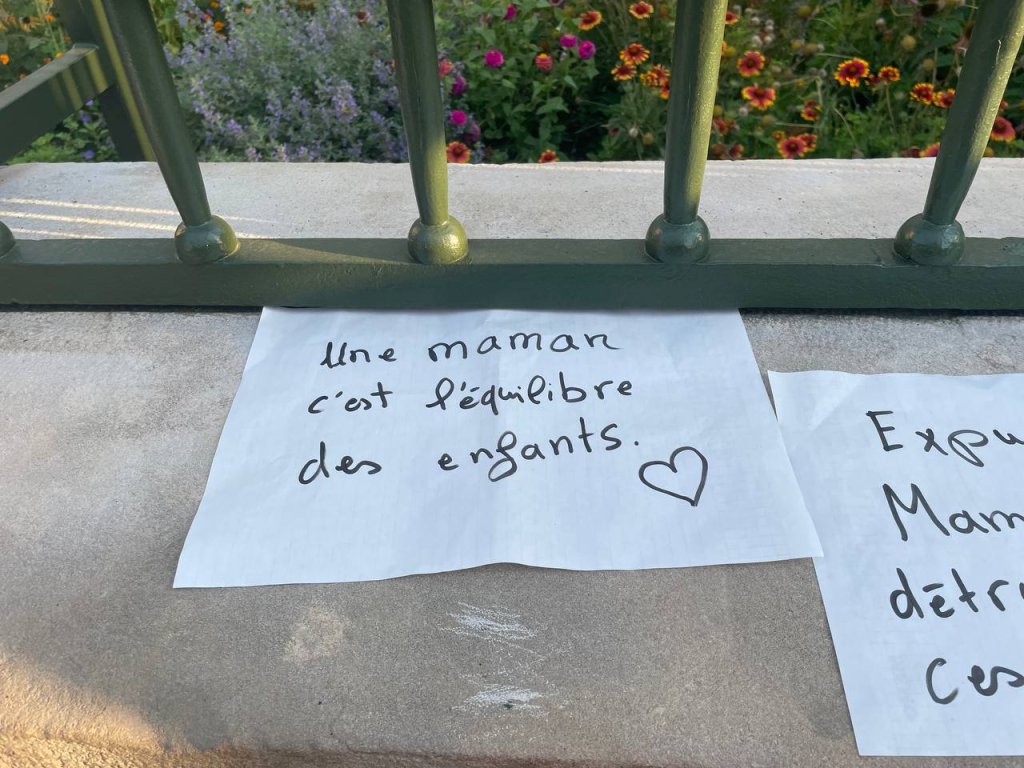 Une maman
c'est l'équilibre
des enfants.
Expu
Mam
détru
Ces